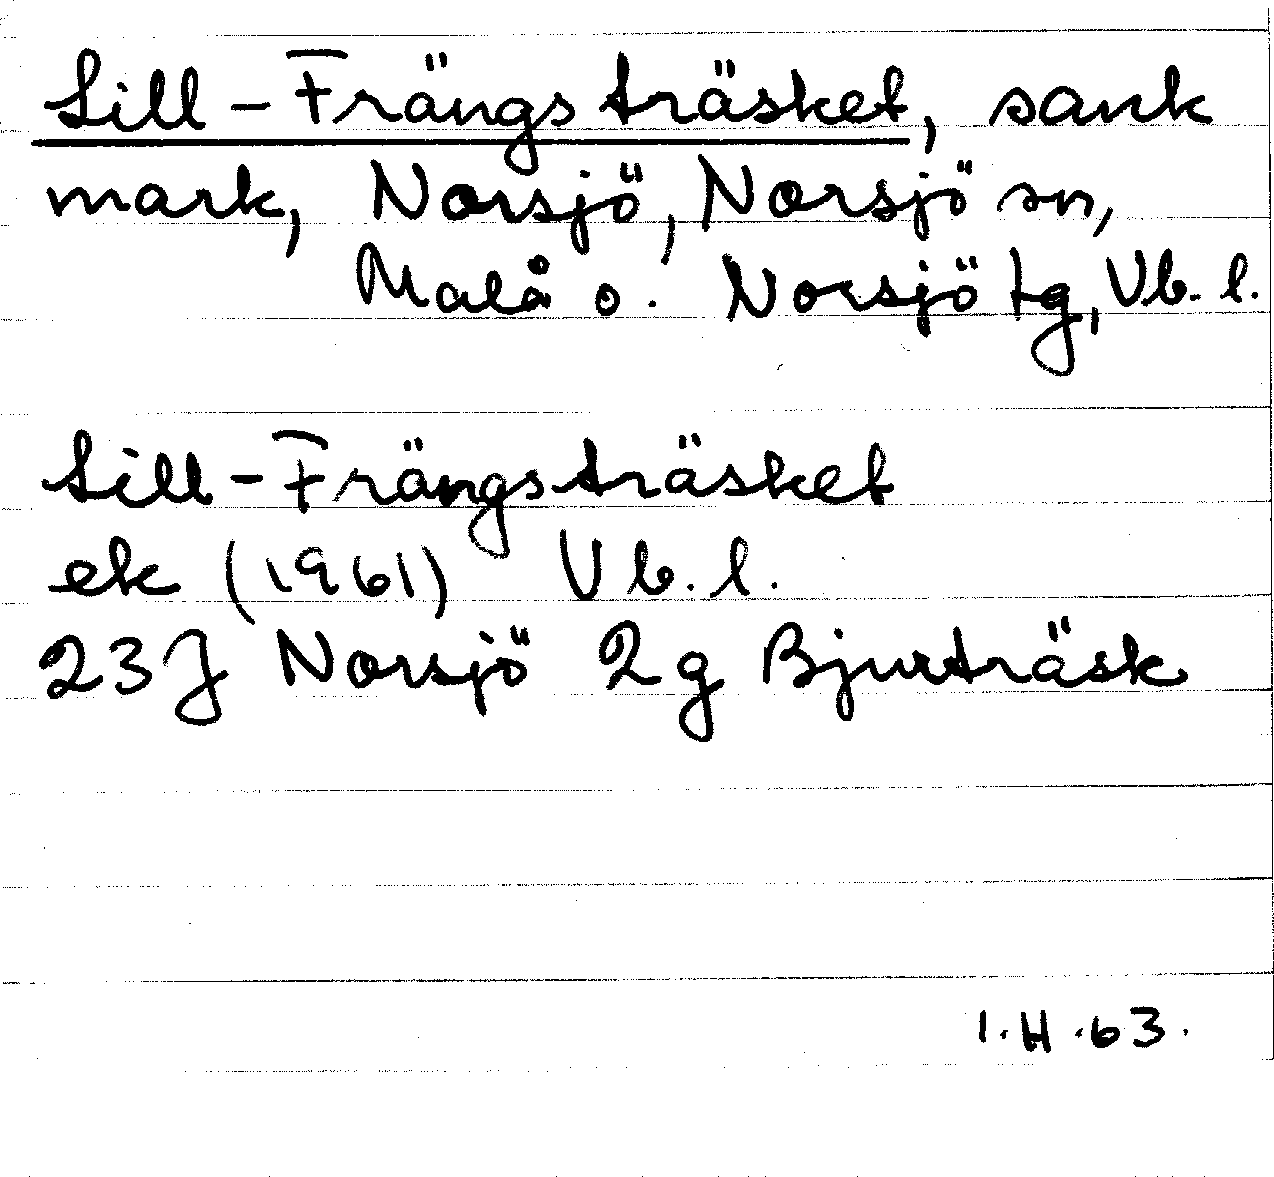 Lill-Frängsträsket, sank
mark, Norsjö, Norsjö sn,
Malå o. Norsjö tg, Vb. l.
Lill-Frängsträsket
ek (1961) Vb. l.
23J Norsjö 2g Bjurträsk
I.H.63.